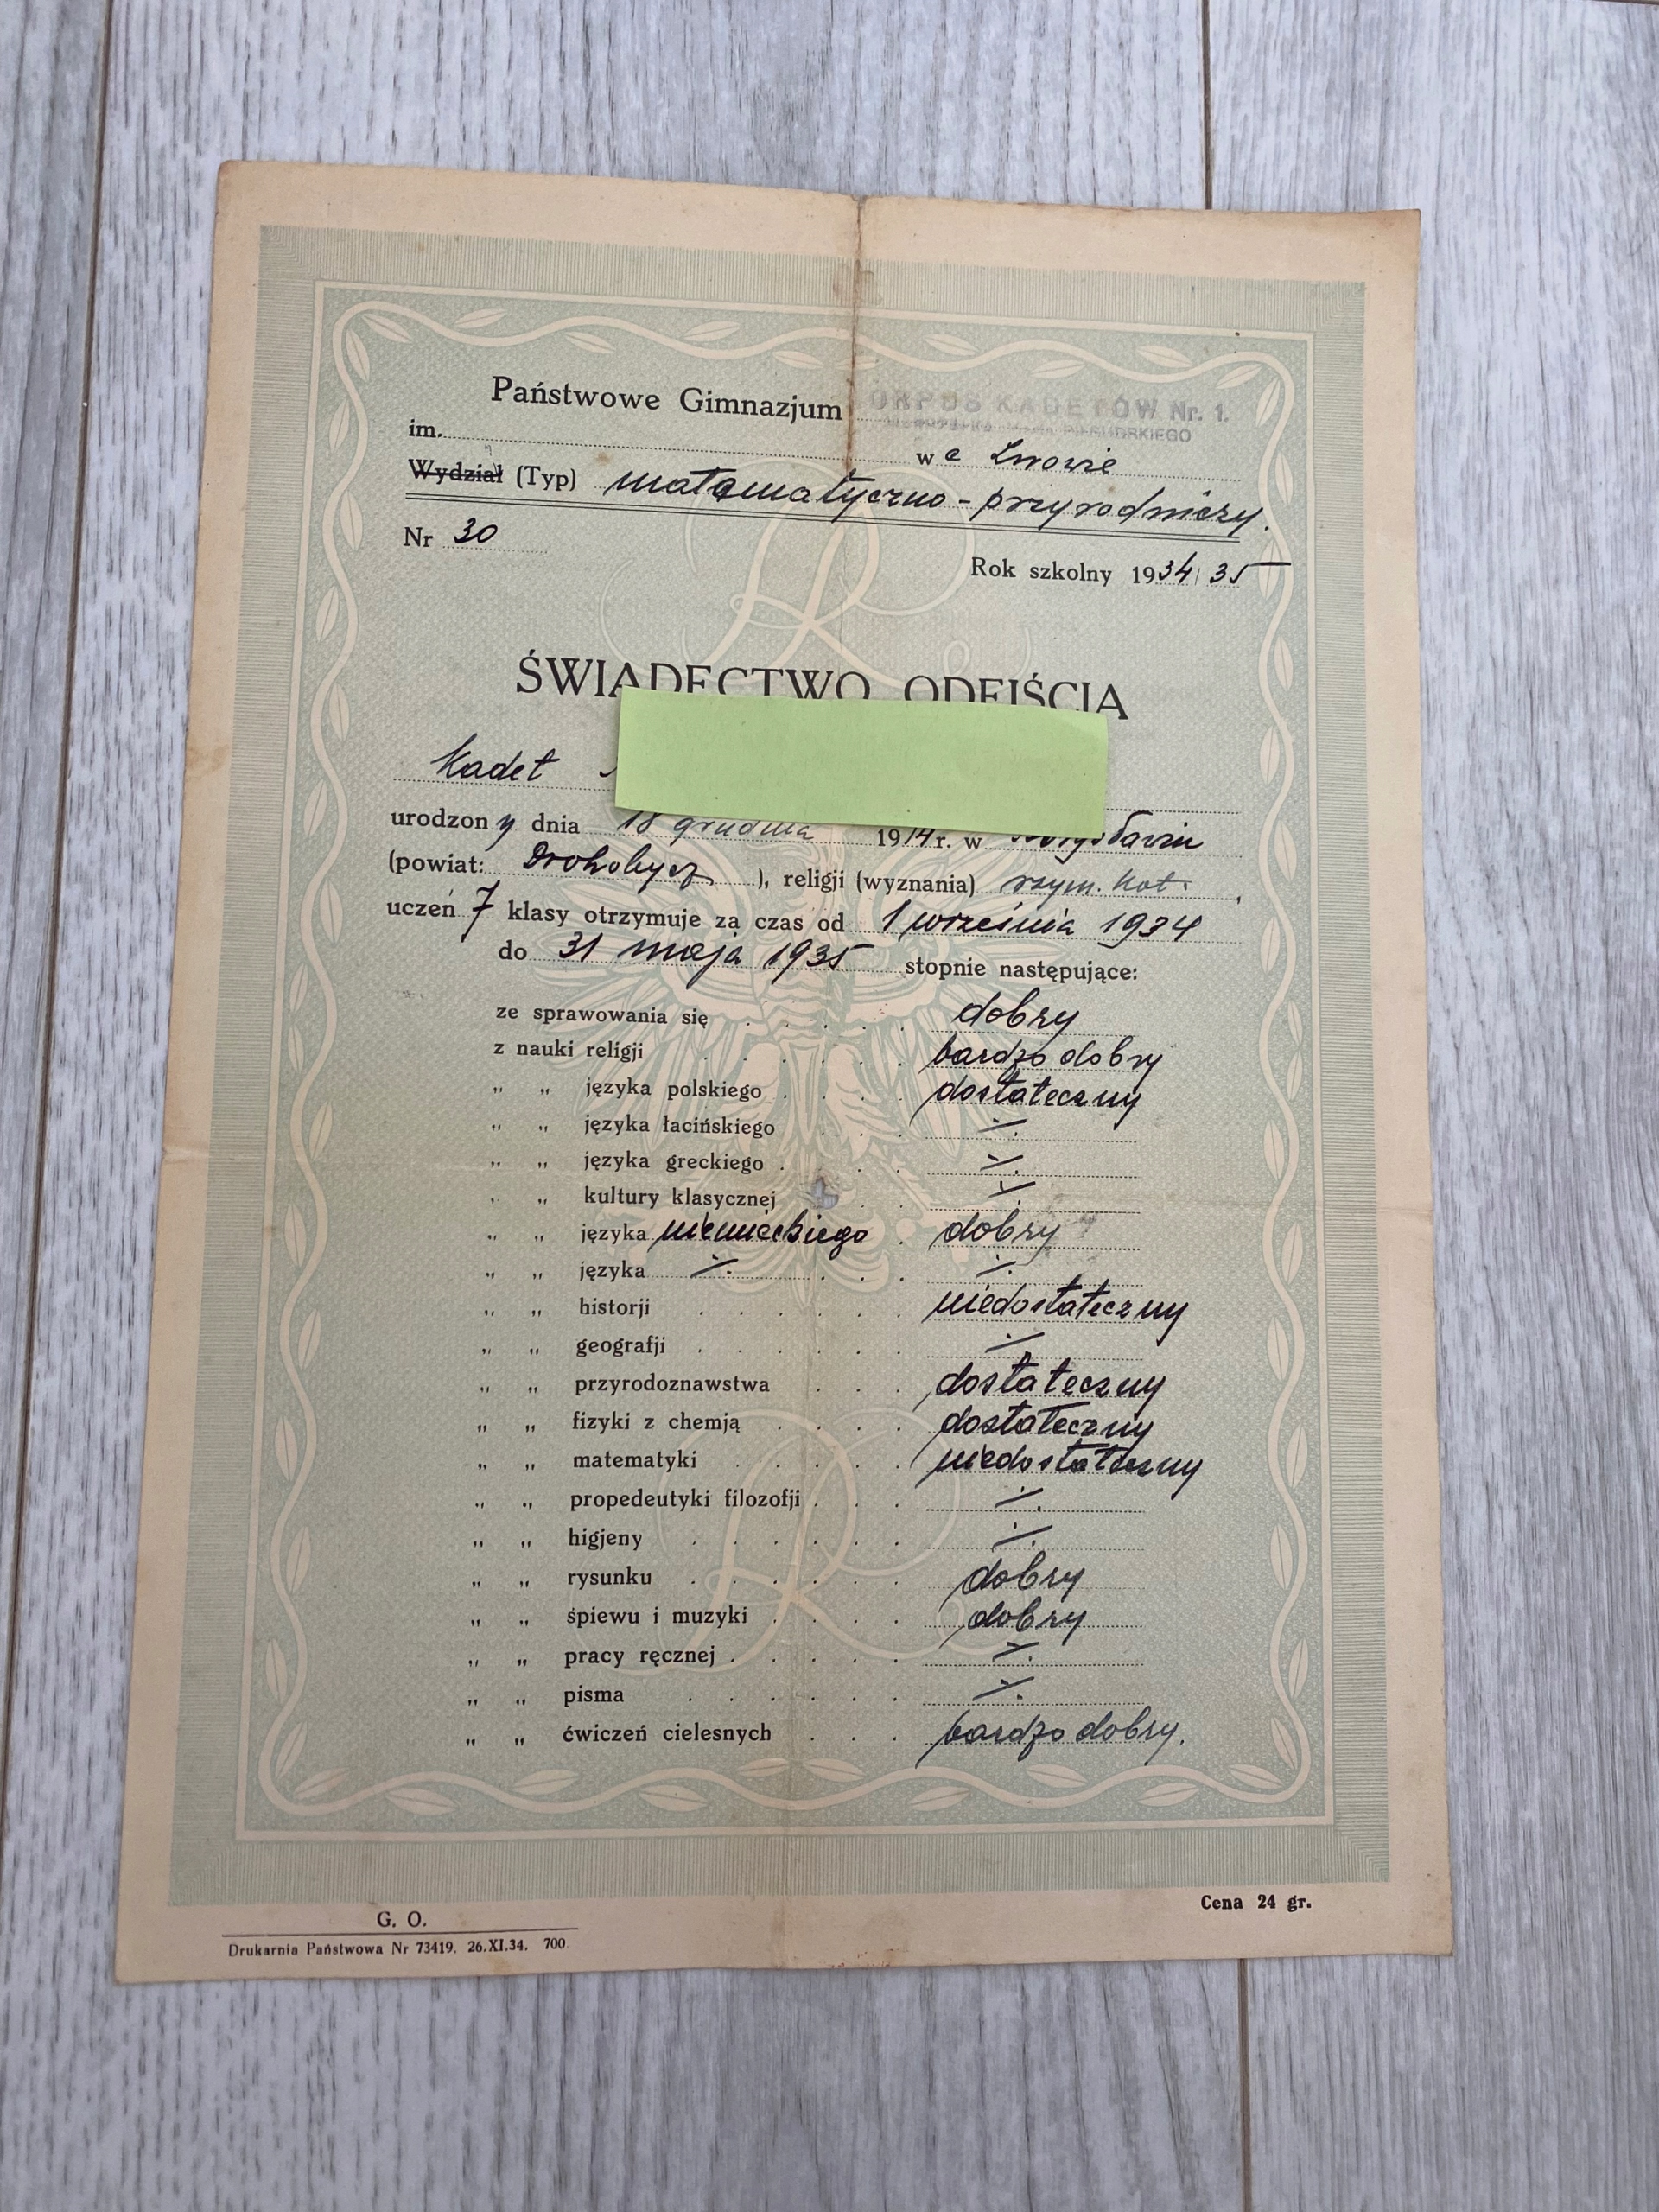 Państwowe Gimnazjum KORPUS KADETÓW Nr. 1.
im. PIŁSUDSKIEGO
we Lwowie
Wydział (Typ) matematyczno-przyrodniczy.
Nr 30
Rok szkolny 1934/35
ŚWIADECTWO ODEJŚCIA
Kadet
urodzony dnia 18 grudnia 1914 r. w Borysławiu
(powiat: Drohobycz), religji (wyznania) rzym. kat.,
uczeń 7 klasy otrzymuje za czas od 1 września 1934
do 31 maja 1935 stopnie następujące:
ze sprawowania się . . . . . dobry
z nauki religji . . . . . . bardzo dobry
" " języka polskiego . . . . dostateczny
" " języka łacińskiego . . . ⁒
" " języka greckiego . . . . ⁒
" " kultury klasycznej . . . ⁒
" " języka niemieckiego . dobry
" " języka ⁒ . . . ⁒
" " historji . . . . . . niedostateczny
" " geografji . . . . . . ⁒
" " przyrodoznawstwa . . . dostateczny
" " fizyki z chemją . . . . dostateczny
" " matematyki . . . . . niedostateczny
" " propedeutyki filozofji . . . ⁒
" " higjeny . . . . . . ⁒
" " rysunku . . . . . . dobry
" " śpiewu i muzyki . . . . dobry
" " pracy ręcznej . . . . . ⁒
" " pisma . . . . . . ⁒
" " ćwiczeń cielesnych . . . bardzo dobry.
Cena 24 gr.
G. O.
Drukarnia Państwowa Nr 73419. 26.XI.34. 700